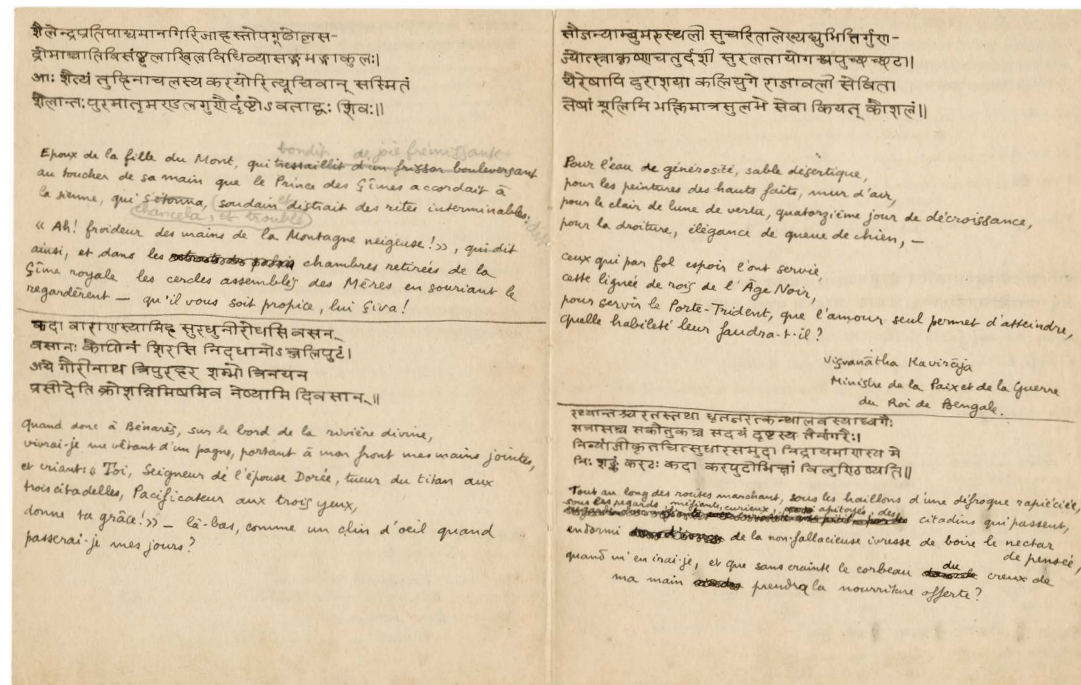 शैलेन्द्रप्रतिपाद्यमानगिरिजाहस्तोपगूढोल्लस-
द्रोमाञ्चादिविसंष्ठुलाखिलविधिव्यासङ्गभङ्गाकुलः।
आः शैत्यं तुहिनाचलस्य करयोरित्यूचिवान् सस्मितं
शैलान्तःपुरमातृमण्डलगणैर्दृष्टोऽवताद्वः शिवः॥
bondit de joie frémissante
Epoux de la fille du Mont, qui tressaillit d'un frisson bouleversant
au toucher de sa main que le Prince des Çîmes accordait à
la sienne, qui s'étonna, soudain distrait des rites interminables,
chancela, et troublé
« Ah! froideur des mains de la Montagne neigeuse! », qui dit
ainsi, et dans les chambres retirées de la
Çîme royale les cercles assemblés des Mères en souriant le
regardèrent — qu'il vous soit propice, lui Çiva!
कदा वाराणस्यामिह सुरधुनीरोधसि वसन्
वसानः कौपीनं शिरसि निदधानोऽञ्जलिपुटं।
अये गौरीनाथ त्रिपुरहर शम्भो त्रिनयन
प्रसीदेति क्रोशन्निमिषमिव नेष्यामि दिवसान्॥
Quand donc à Bénarès, sur le bord de la rivière divine,
vivrai-je me vêtant d'un pagne, portant à mon front mes mains jointes,
et criant: « Toi, Seigneur de l'épouse Dorée, tueur du titan aux
trois citadelles, Pacificateur aux trois yeux,
donne ta grâce! » — là-bas, comme un clin d'oeil quand
passerai-je mes jours?
सौजन्याम्बुमरुस्थली सुचरितालेख्यद्युभित्तिर्गुण-
ज्योत्स्नाकृष्णचतुर्दशी सुरलतायोगश्वपुच्छच्छटा।
यैरेषापि दुराशया कलियुगे राजावली सेविता
तेषां शूलिनि भक्तिमात्रसुलभे सेवा कियत् कौशलं॥
Pour l'eau de générosité, sable désertique,
pour les peintures des hauts faits, mur d'air,
pour le clair de lune de vertu, quatorzième jour de décroissance,
pour la droiture, élégance de queue de chien, —
ceux qui par fol espoir l'ont servie,
cette lignée de rois de l'Âge Noir,
pour servir le Porte-Trident, que l'amour seul permet d'atteindre,
quelle habileté leur faudra-t-il?
Viçvanâtha Kavirâja
Ministre de la Paix et de la Guerre
du Roi de Bengale.
रथ्यान्तश्चरतस्तथा धृतजरत्कन्थालवस्याध्वगैः
सत्रासञ्च सकौतुकञ्च सदयं दृष्टस्य तैर्नागरैः।
निर्व्याजीकृतचित्सुधारसमुदा निद्रायमाणस्य मे
निःशङ्कं करटः कदा करपुटीभिक्षां विलुण्ठिष्यति॥
Tout au long des routes marchant, sous les haillons d'une défroque rapiécée,
sous les regards méfiants, curieux, apitoyés, des
citadins qui passent,
endormi de la non-fallacieuse ivresse de boire le nectar
de pensée,
quand m'en irai-je, et que sans crainte le corbeau du creux de
ma main prendra la nourriture offerte?